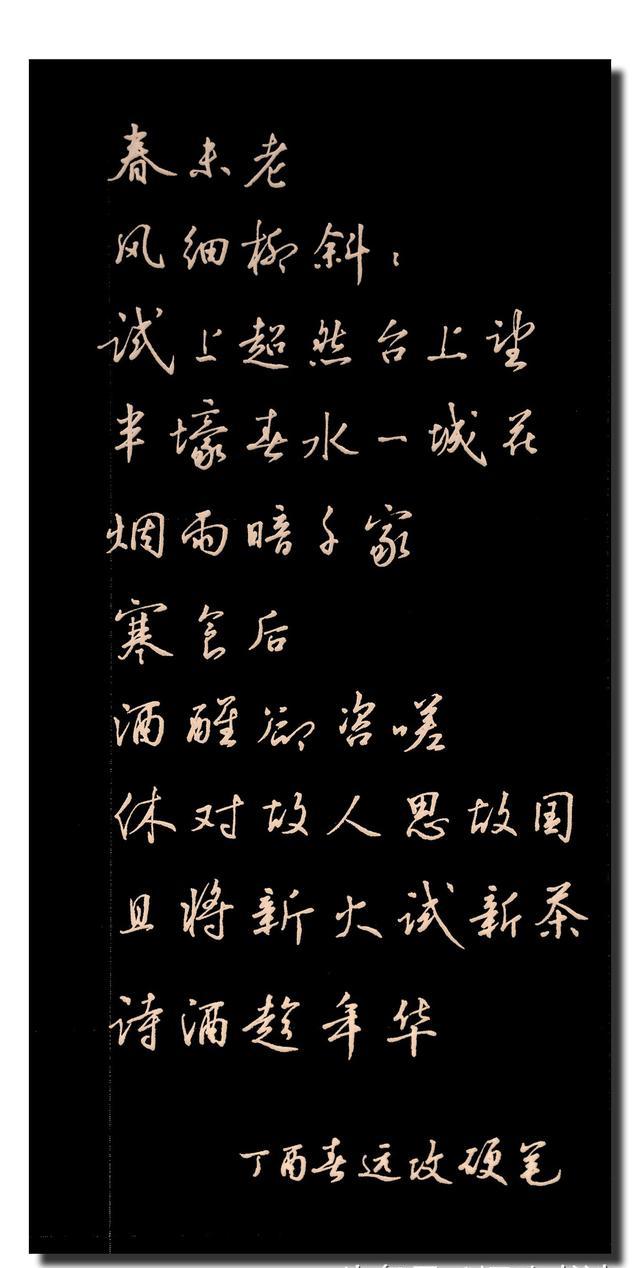 春未老
风细柳斜；
试上超然台上望
半壕春水一城花
烟雨暗千家
寒食后
酒醒却咨嗟
休对故人思故国
且将新火试新茶
诗酒趁年华
丁酉春远攻硬笔